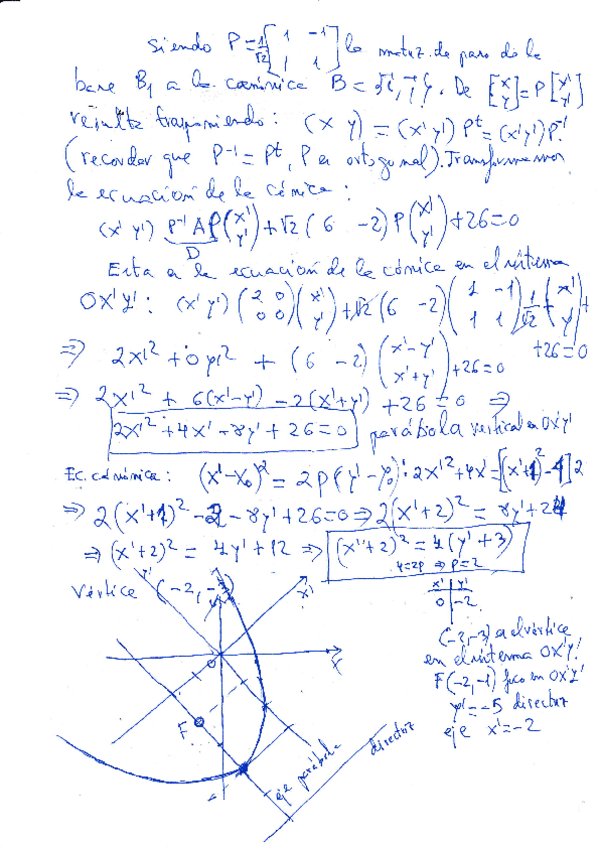 siendo P = 1/√2 [1 -1; 1 1] la matriz de paso de la
base B₁ a la canónica B = {i, j}. De [x; y] = P [x'; y']
resulta trasponiendo: (x y) = (x' y') Pᵗ = (x' y') P⁻¹
(recordar que P⁻¹ = Pᵗ, P es ortogonal). Transformemos
la ecuación de la cónica:
(x' y') P⁻¹ A P (x'; y') + √2 (6 -2) P (x'; y') + 26 = 0
D
Esta es la ecuación de la cónica en el sistema
OX'Y': (x' y') (2 0; 0 0) (x'; y') + √2 (6 -2) (1 -1; 1 1) 1/√2 (x'; y') +
+26 = 0
⇒ 2x'² + 0y'² + (6 -2) (x'-y'; x'+y') + 26 = 0
⇒ 2x'² + 6(x'-y') - 2(x'+y') + 26 = 0 ⇒
2x'² + 4x' - 8y' + 26 = 0 parábola vertical en OX'Y'
Ec. canónica: (x'-x₀')² = 2p(y'-y₀'): 2x'² + 4x' = [(x'+1)² - 1] 2
⇒ 2(x'+1)² - 2 - 8y' + 26 = 0 ⇒ 2(x'+2)² = 8y' + 24
⇒ (x'+2)² = 4y' + 12 ⇒ (x'+2)² = 4(y'+3)
4=2p ⇒ p=2
Vértice (-2, -3)
x' y'
0 -2
y'
y
x'
O
x
F
eje parábola
directriz
(-2,-3) es el vértice
en el sistema OX'Y'.
F(-2,-1) foco en OX'Y'
y' = -5 directriz
eje x' = -2